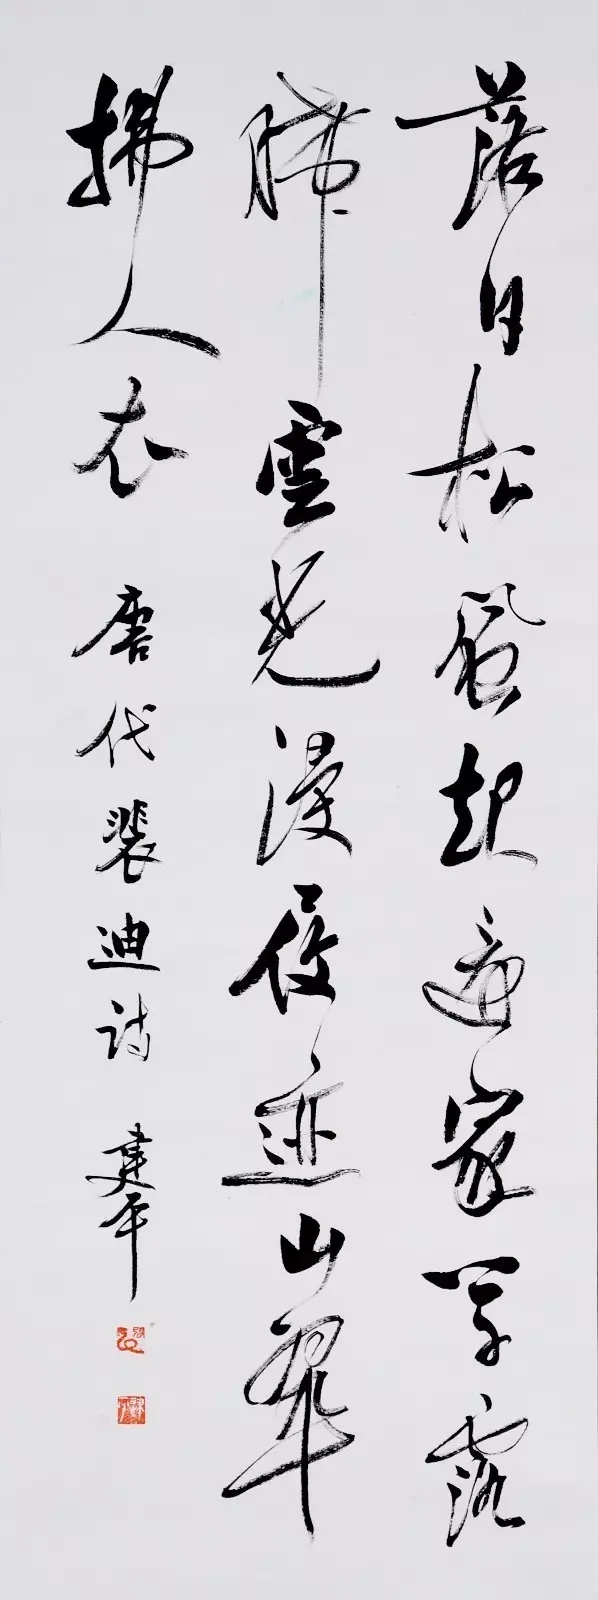 落日松風起還家草露
晞雲光浸履迹山翠
拂人衣 唐代裴迪诗 建平